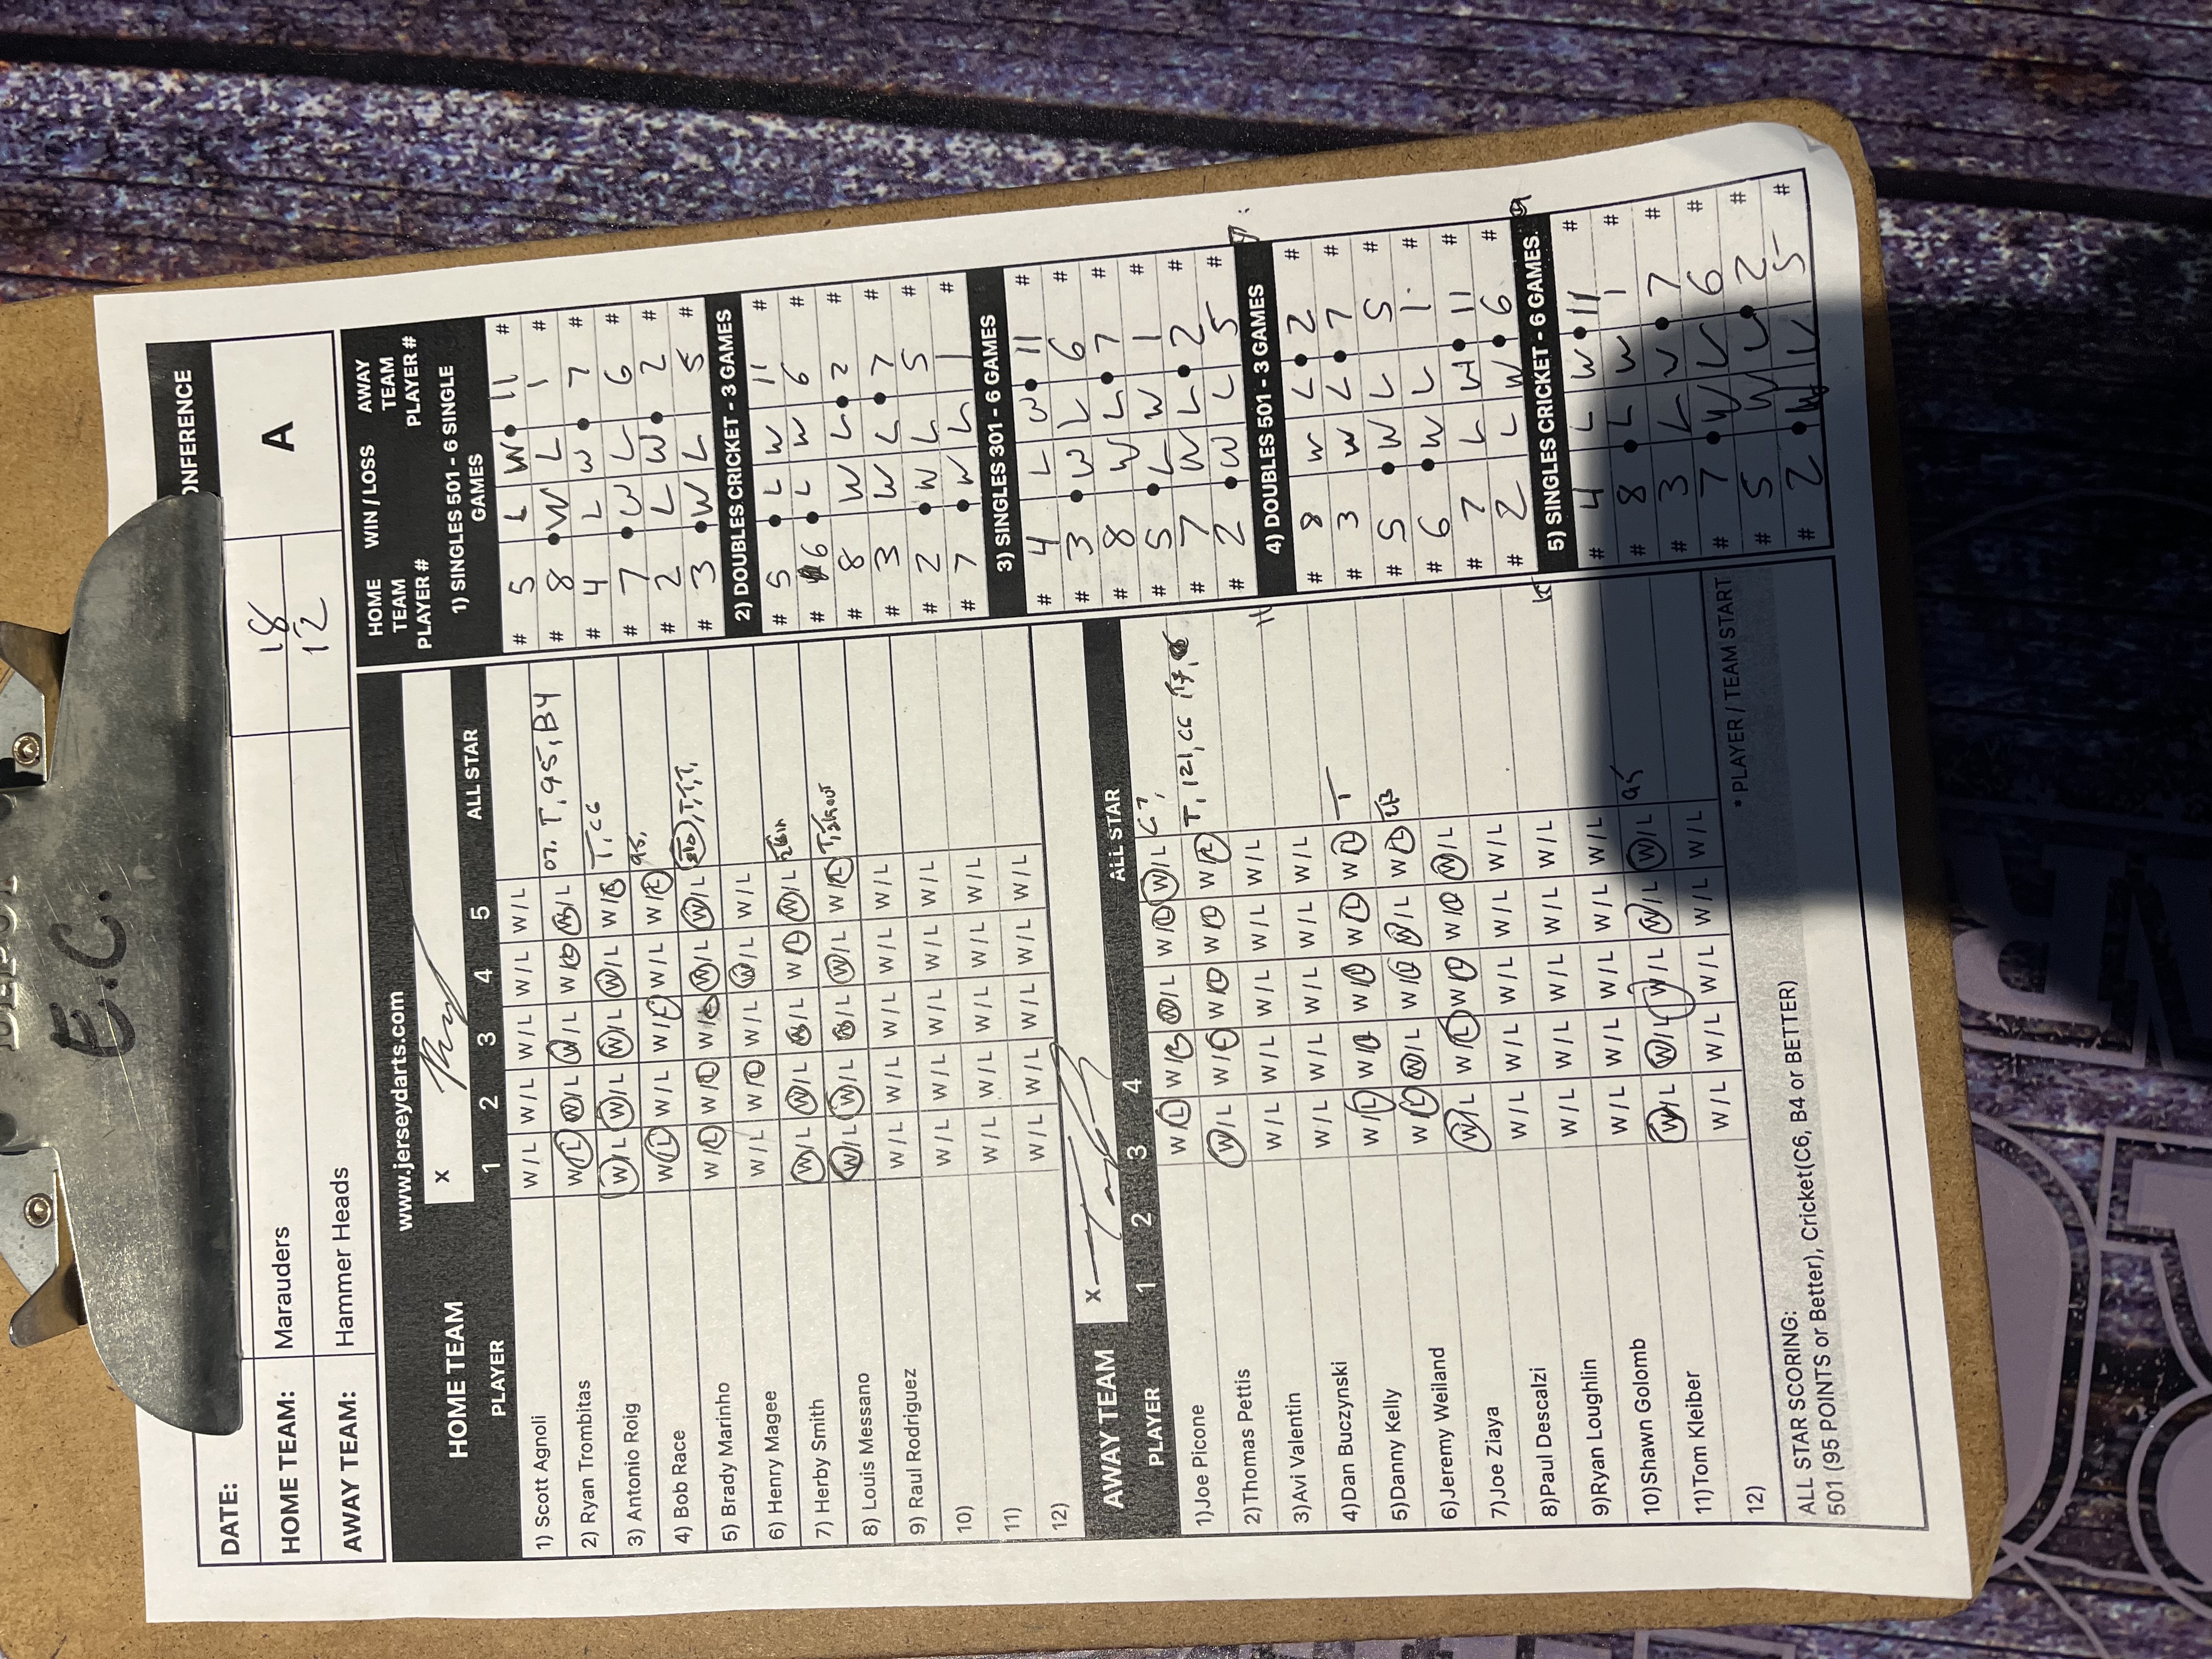 E.C.
CONFERENCE
A
DATE:
HOME TEAM: Marauders 18
AWAY TEAM: Hammer Heads 12
www.jerseydarts.com
HOME TEAM
X
PLAYER 1 2 3 4 5 ALL STAR
1) Scott Agnoli W/L W/L W/L W/L W/L
2) Ryan Trombitas W/L W/L W/L W/L W/L 07. T, 95, B4
3) Antonio Roig W/L W/L W/L W/L W/L T, C6
4) Bob Race W/L W/L W/L W/L W/L 95,
5) Brady Marinho W/L W/L W/L W/L W/L T, T, T,
6) Henry Magee W/L W/L W/L W/L W/L
7) Herby Smith W/L W/L W/L W/L W/L
8) Louis Messano W/L W/L W/L W/L W/L T,
9) Raul Rodriguez W/L W/L W/L W/L W/L
10) W/L W/L W/L W/L W/L
11) W/L W/L W/L W/L W/L
12) W/L W/L W/L W/L W/L
AWAY TEAM
X
PLAYER 1 2 3 4 ALL STAR
1)Joe Picone W/L W/L W/L W/L W/L C7,
2)Thomas Pettis W/L W/L W/L W/L W/L T, 121, C6
3)Avi Valentin W/L W/L W/L W/L W/L
4)Dan Buczynski W/L W/L W/L W/L W/L
5)Danny Kelly W/L W/L W/L W/L W/L T
6)Jeremy Weiland W/L W/L W/L W/L W/L
7)Joe Ziaya W/L W/L W/L W/L W/L
8)Paul Descalzi W/L W/L W/L W/L W/L
9)Ryan Loughlin W/L W/L W/L W/L W/L
10)Shawn Golomb W/L W/L W/L W/L W/L
11)Tom Kleiber W/L W/L W/L W/L W/L 95
12) W/L W/L W/L W/L W/L
ALL STAR SCORING:
501 (95 POINTS or Better), Cricket(C6, B4 or BETTER)
* PLAYER / TEAM START
HOME TEAM PLAYER # WIN / LOSS AWAY TEAM PLAYER #
1) SINGLES 501 - 6 SINGLE GAMES
# 5 L W 11 #
# 8 W L 1 #
# 4 L W 7 #
# 7 W L 6 #
# 2 L W 2 #
# 3 W L 5 #
2) DOUBLES CRICKET - 3 GAMES
# 5 L W 11 #
# 6 L W 6 #
# 8 W L 2 #
# 3 W L 7 #
# 2 W L 5 #
# 7 W L 1 #
3) SINGLES 301 - 6 GAMES
# 4 L W 11 #
# 3 W L 6 #
# 8 W L 7 #
# 5 L W 1 #
# 7 W L 2 #
# 2 W L 5 #
4) DOUBLES 501 - 3 GAMES
# 8 W L 2 #
# 3 W L 7 #
# 5 W L 5 #
# 6 W L 1 #
# 7 L W 11 #
# 2 L W 6 #
5) SINGLES CRICKET - 6 GAMES
# 4 L W 11 #
# 8 L W 1 #
# 3 L W 7 #
# 7 W L 6 #
# 5 W L 2 #
# 2 W L 5 #